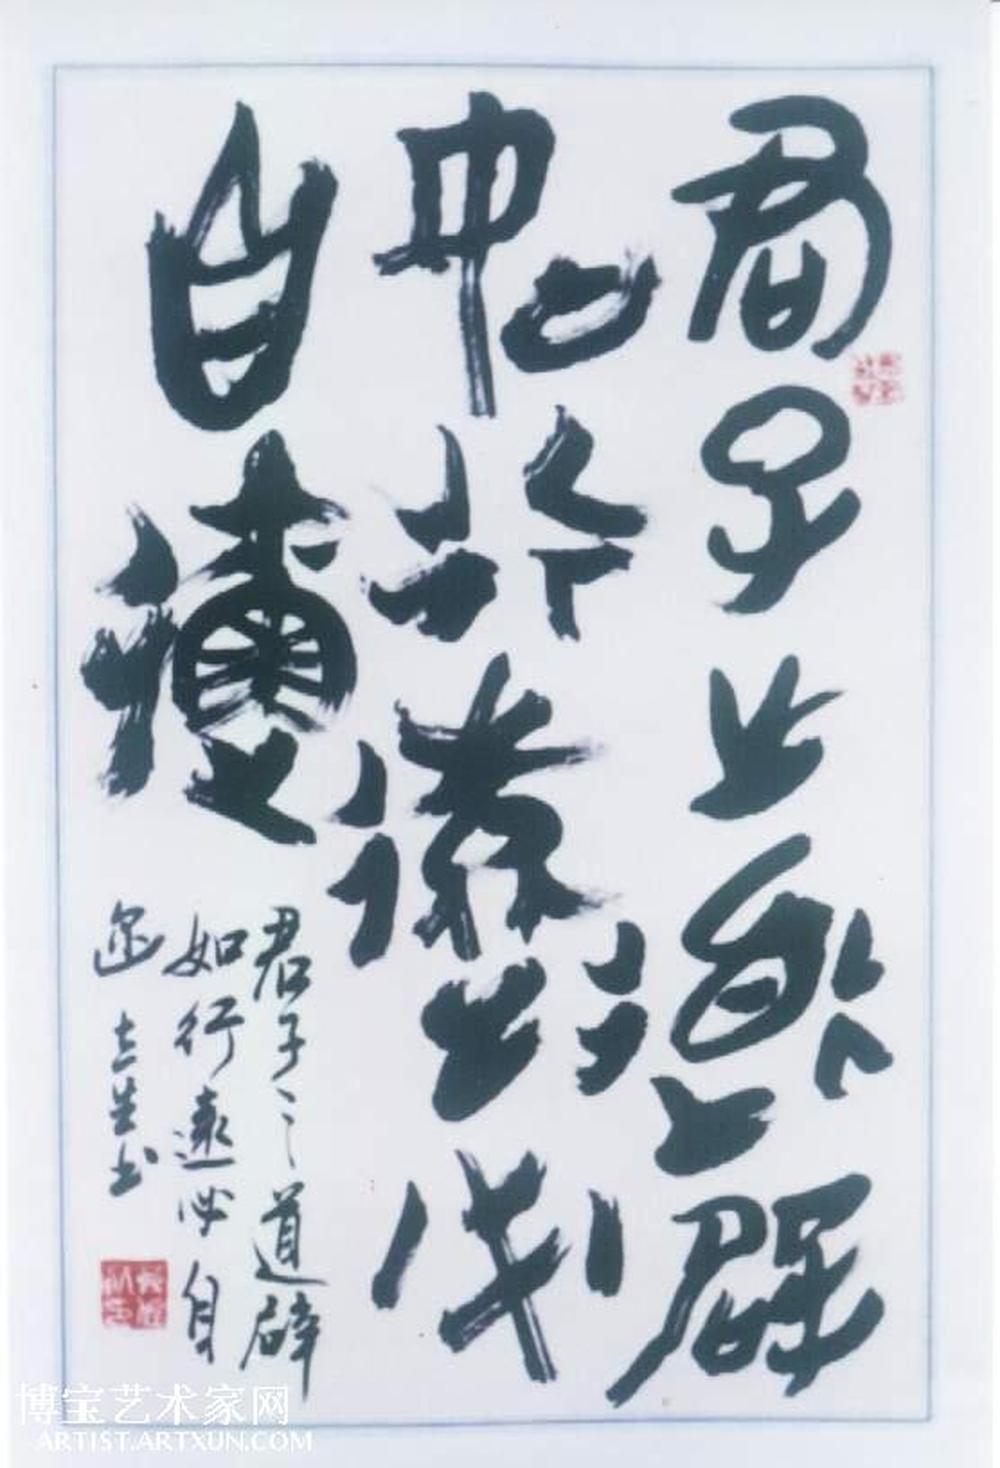 君子之道辟
如行遠必
自邇
君子之道辟
如行遠必自
迩 志生书
博宝艺术家网
ARTIST.ARTXUN.COM